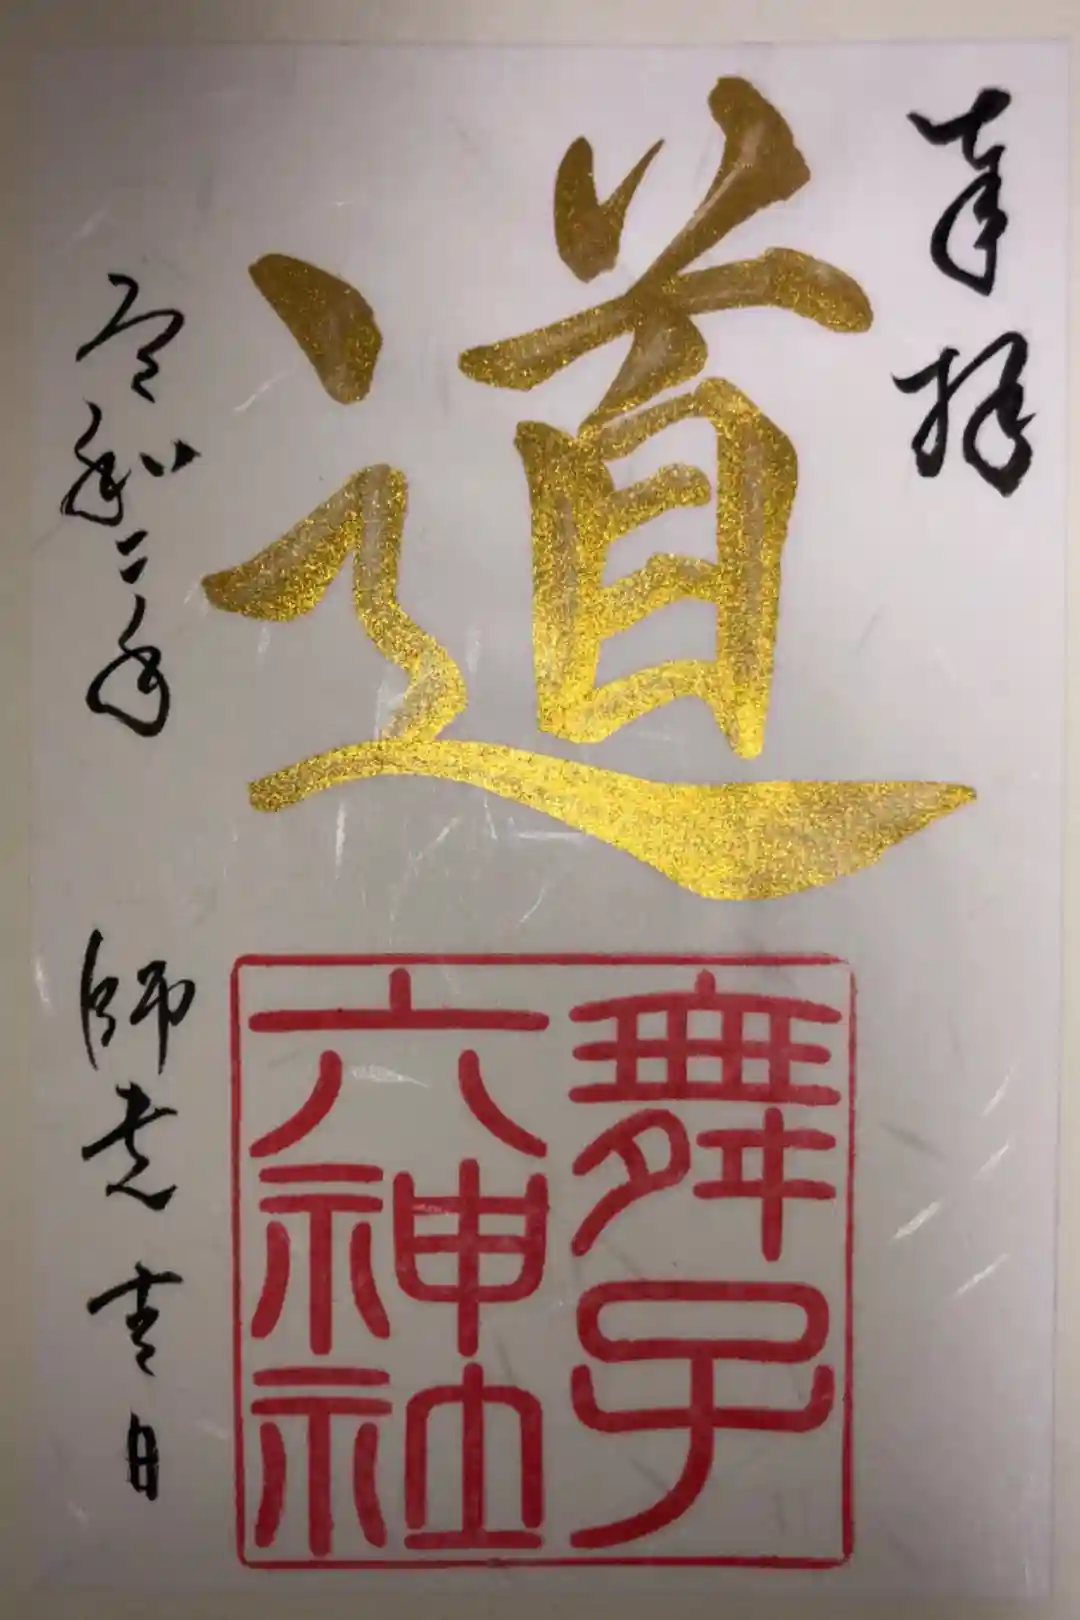 奉拝
道
舞子
六神社
令和二年
師走吉日